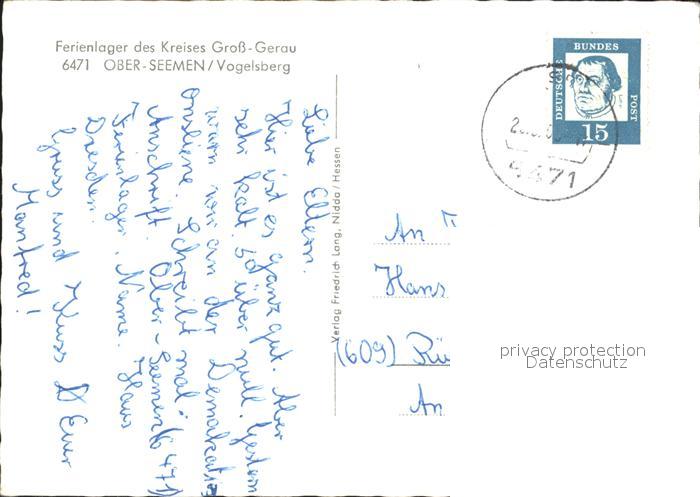 Ferienlager des Kreises Groß-Gerau
6471 OBER-SEEMEN/Vogelsberg
Liebe Eltern.
Hier ist es ganz gut. Aber
sehr kalt. so über null. Gestern
waren wir an der Demarkations
Schreibt mal:
Anschrift. Ober-Seemen (6471)
Ferienlager. Name. Haus
Dresden.
Gruss und Kuss Euer
Manfred!
Verlag Friedrich Lang, Nidda/Hessen
DEUTSCHE
BUNDES
POST
15
6471
An
Hans
(609) Rü
An
privacy protection
Datenschutz